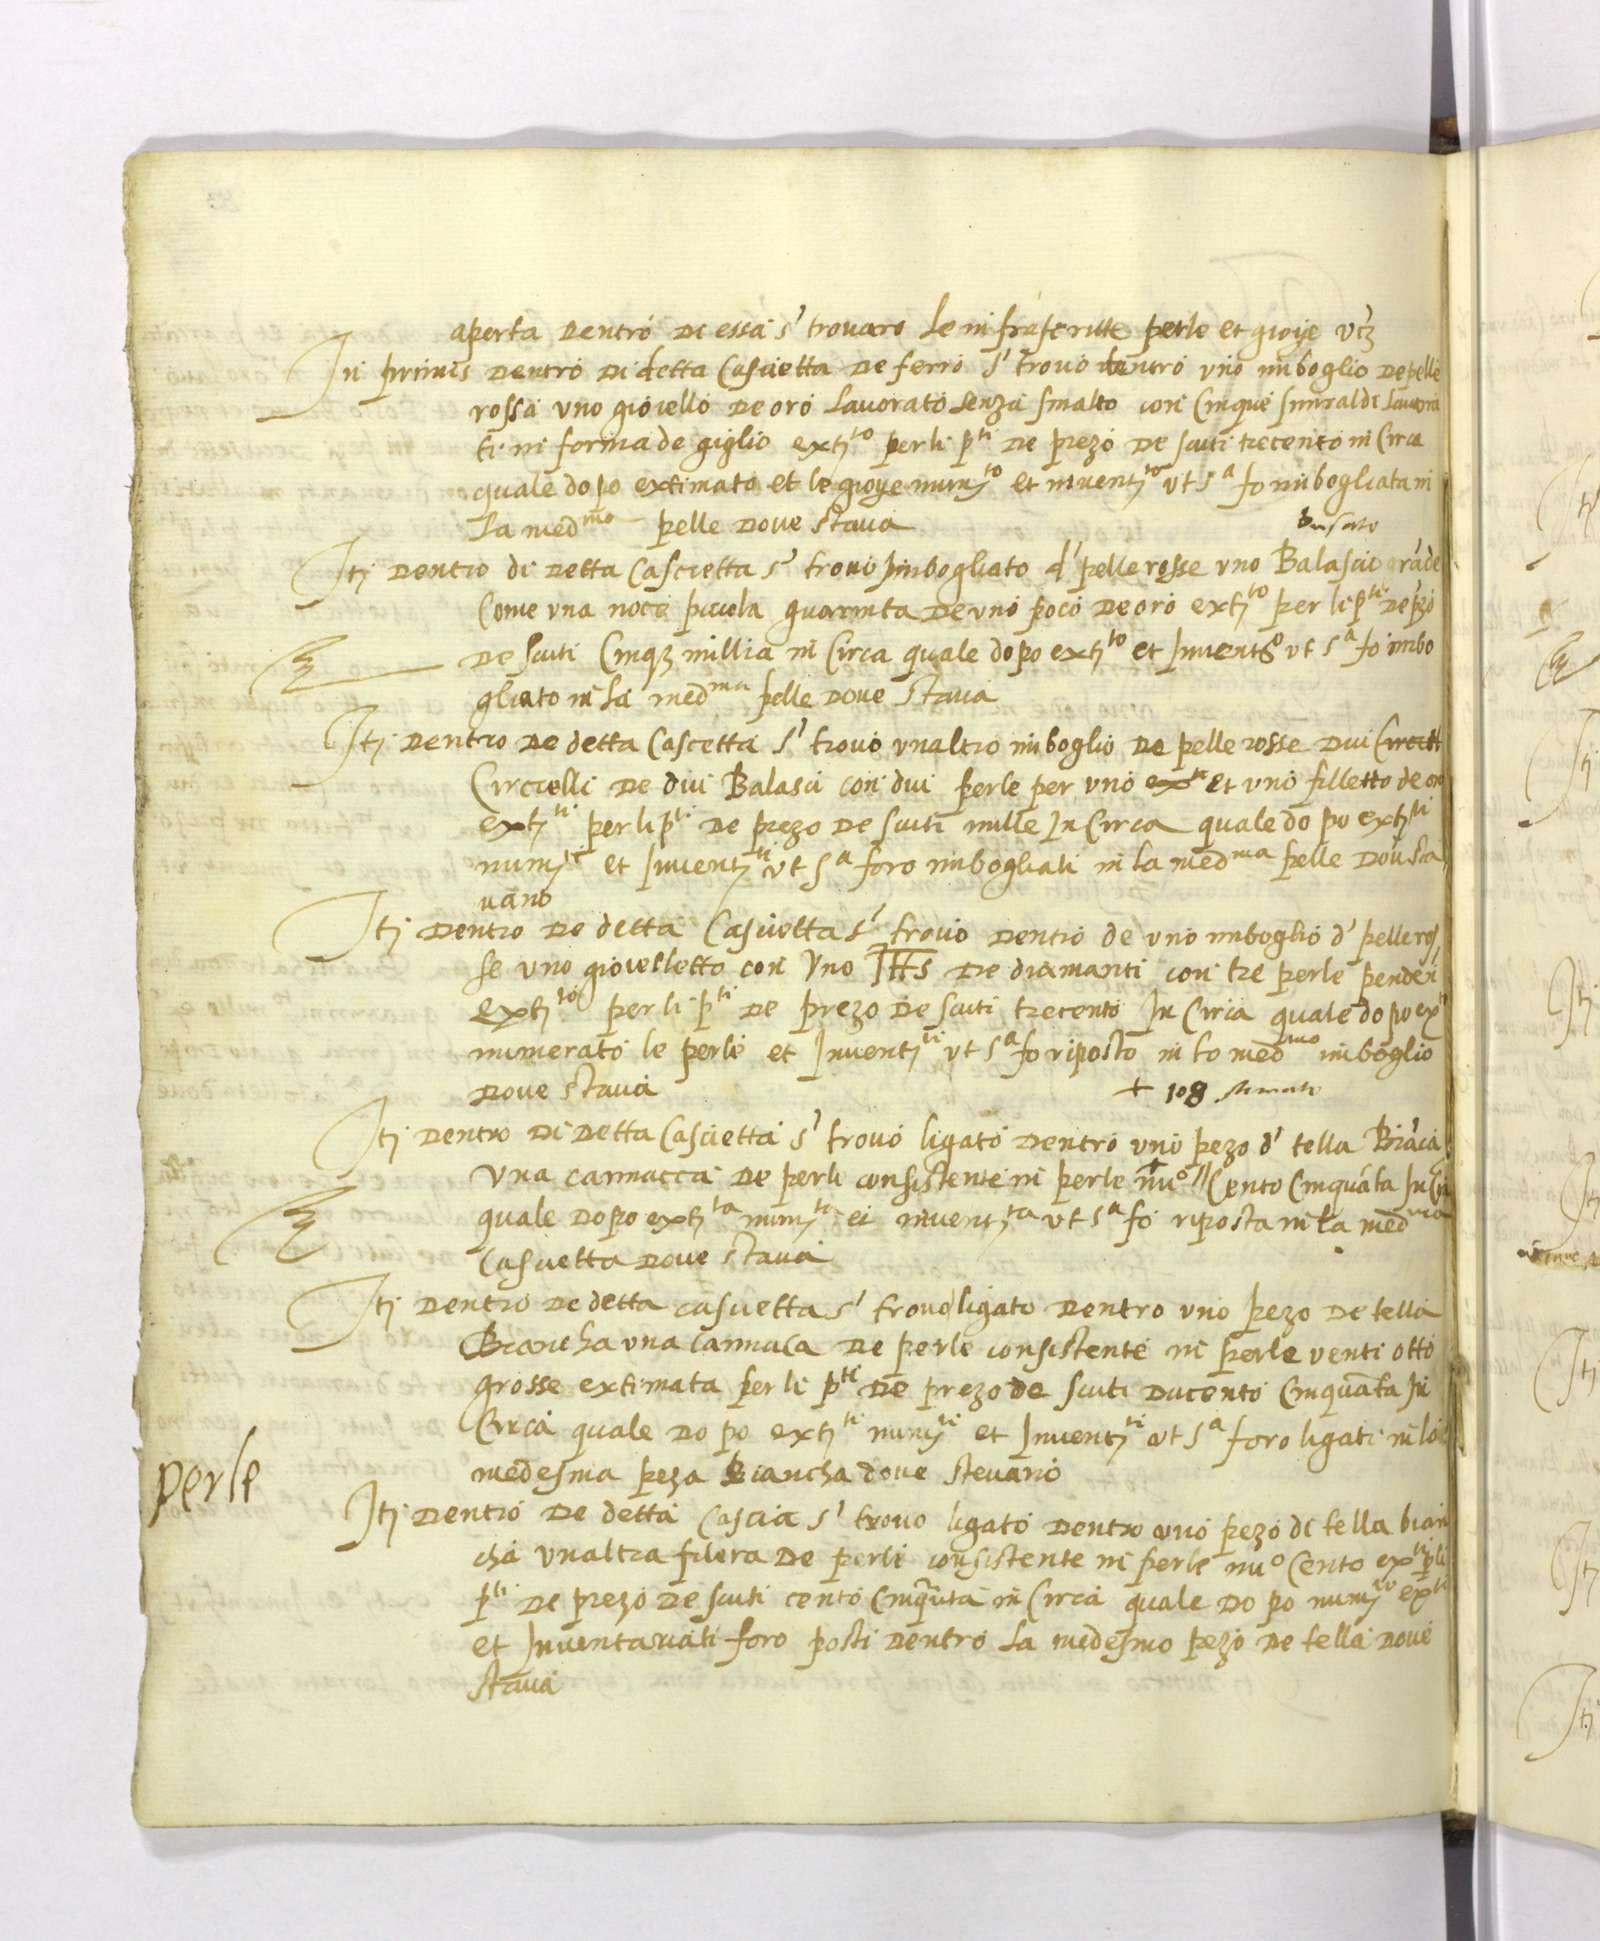 aperta dentro di essa s' trovaro le infrascritte perle et gioye vz
In primis dentro di detta cascietta de ferro s' trovo dentro uno imboglio de pelle
rossa uno gioiello de oro lavorato senza smalto con cinque smiraldi lavora
ti in forma de giglio extj^to per li p^ti de prezo de scuti trecento in circa
quale dopo extimato et le gioye numj^to et inventj^to ut s^a fo imbogliata in
la med^ma pelle dove stava
busato
Itj dentro di detta cascietta s' trovi imbogliato d' pelle rosse uno Balascio grāde
come una noce picola guarnita de uno poco de oro extj^to per li p^ti de pzo
de scuti cinqz millia in circa quale dopo extj^to et Invent^o ut s^a fo imbo
gliato in la med^ma pelle dove stava
Itj dentro de detta cascetta s' trovo unaltro imboglio de pelle rosse dui
Circielli de dui Balasci con dui perle per uno et uno filletto de oro
extj^ti per li p^ti de prezo de scuti mille In Circa quale dopo extj^ti
numj^ti et Inventj^ti ut s^a foro imbogliati in la med^ma pelle dou sta
vano
Itj dentro de detta cascietta s' trovo dentro de uno imboglio d' pelle ros
se uno gioielletto con uno IHS de diamanti con tre perle penden
extj^to per li p^ti de prezo de scuti trecento In Circa quale dopo ex^ti
numerato le perle et Inventj^ti ut s^a fo riposto in lo med^mo imboglio
dove stava
+ 108 stimato
Itj dentro di detta cascietta s' trovo ligato dentro uno pezo d' tella Biācia
una cannacca de perli consistente in perle nu^o // Cento Cinquāta In Cir
quale dopo extj^ta numj^ta et inventj^ta ut s^a fo riposta in la med^ma
cascietta dove stava
Itj dentro de detta cascietta s' trovo ligato dentro uno pezo de tella
Biancha una cannaca de perle consistente in perle venti otto
grosse extimata per li p^ti de prezo de scuti ducento cinquāta In
Circa quale dopo extj^ti numj^ti et Inventj^ti ut s^a foro ligati in la
medesma peza Biancha dove stevano
perle
Itj dentro de detta cascia s' trovo ligato dentro uno pezo di tella bian
cha unaltra filera de perle consistente in perle nu^o Cento ex^ti p li
p^ti de prezo de scuti cento cinquāta in Circa quale dopo numj^to ex^ti
et Inventariati foro posti dentro la medesmo pezo de tella dove
stava